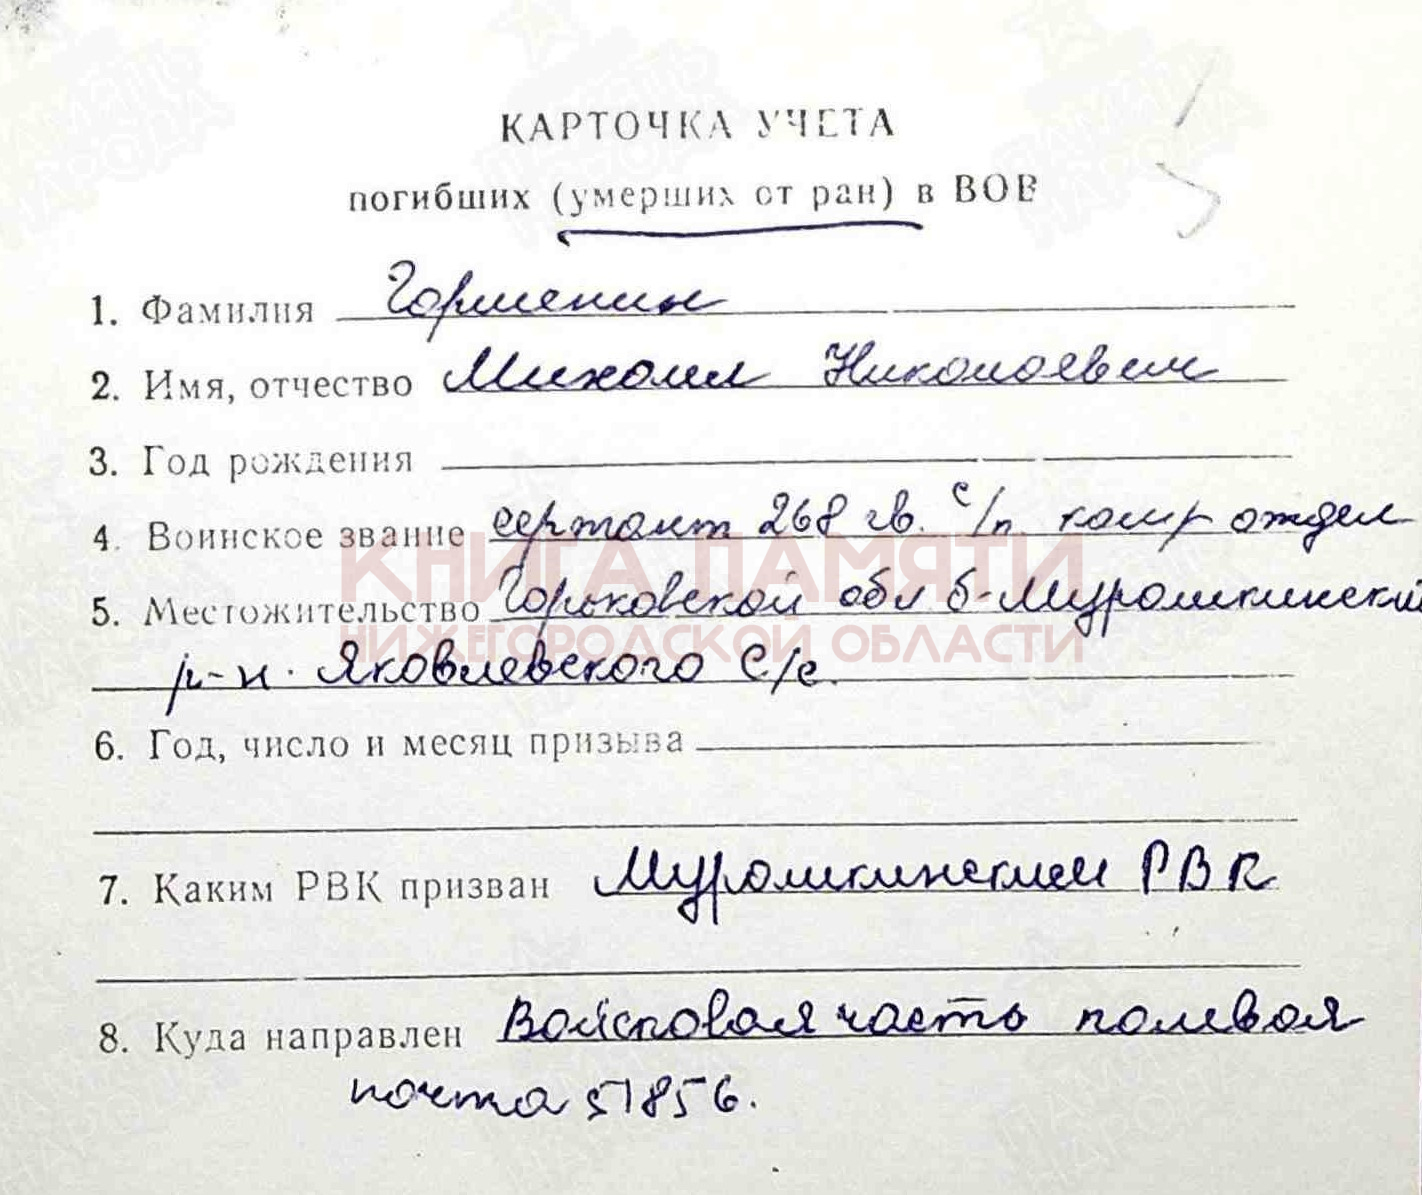 КАРТОЧКА УЧЕТА
погибших (умерших от ран) в ВОВ
1. Фамилия Горшенин
2. Имя, отчество Михаил Николаевич
3. Год рождения
4. Воинское звание сержант 268 гв. с/п. комр отдел
5. Местожительство Горьковской обл Б-Мурашкинский
р-н. Яковлевского с/с.
6. Год, число и месяц призыва
7. Каким РВК призван Мурашкинским РВК
8. Куда направлен Войсковая часть полевая
почта 51856.
КНИГА ПАМЯТИ
НИЖЕГОРОДСКОЙ ОБЛАСТИ
ПАМЯТЬ НАРОДА